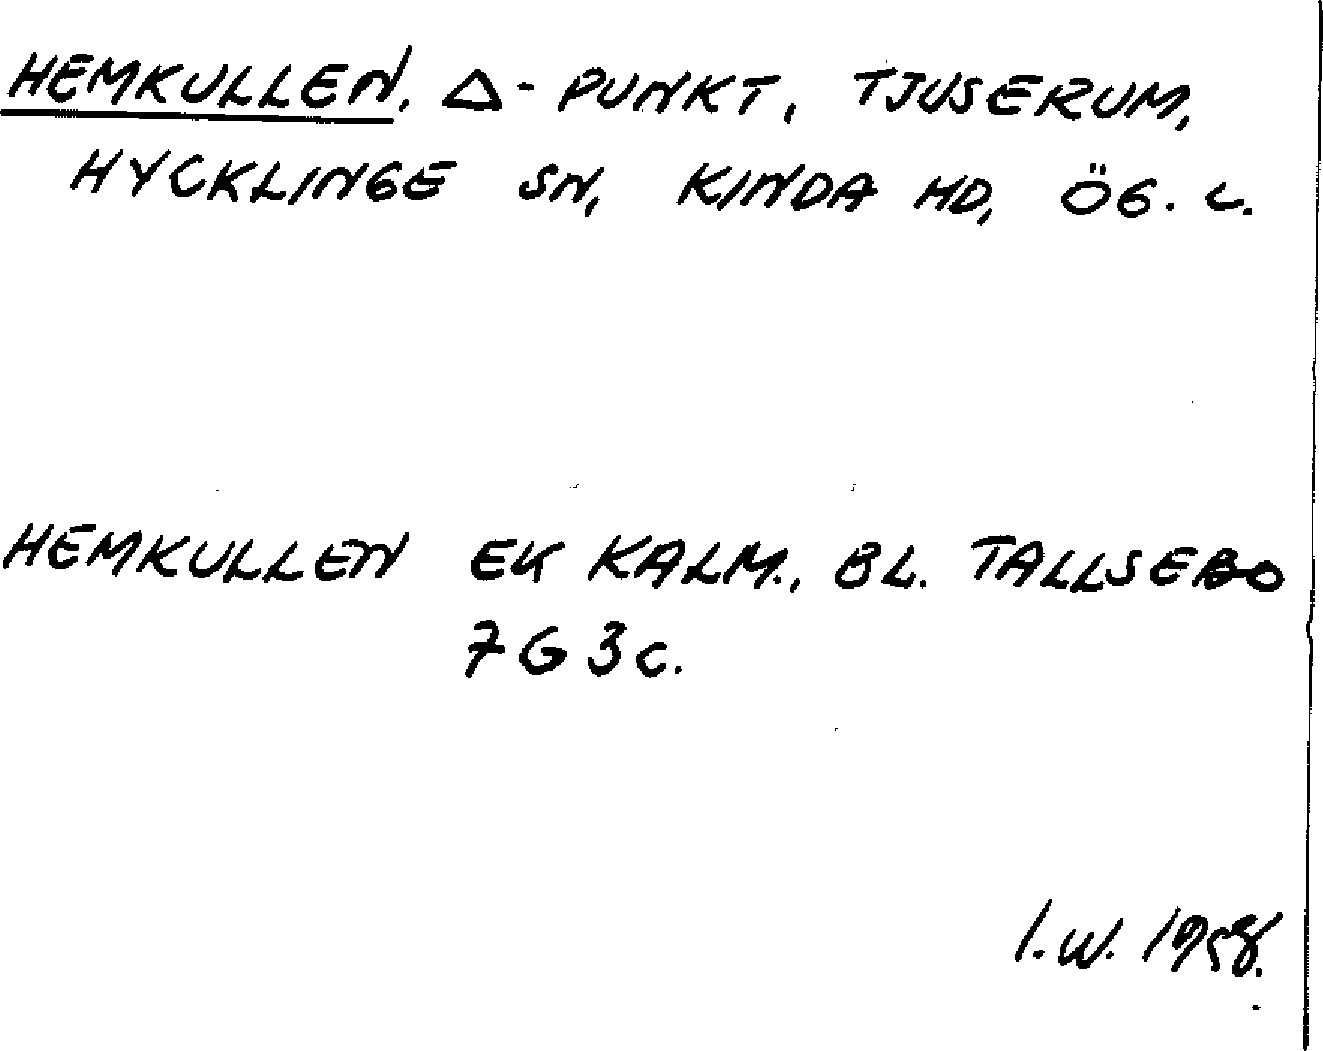 HEMKULLEN, Δ-PUNKT, TJUSERUM,
HYCKLINGE SN, KINDA HD, ÖG. L.
HEMKULLEN EK KALM., BL. TALLSEBO
7G3c.
I.W. 1958.